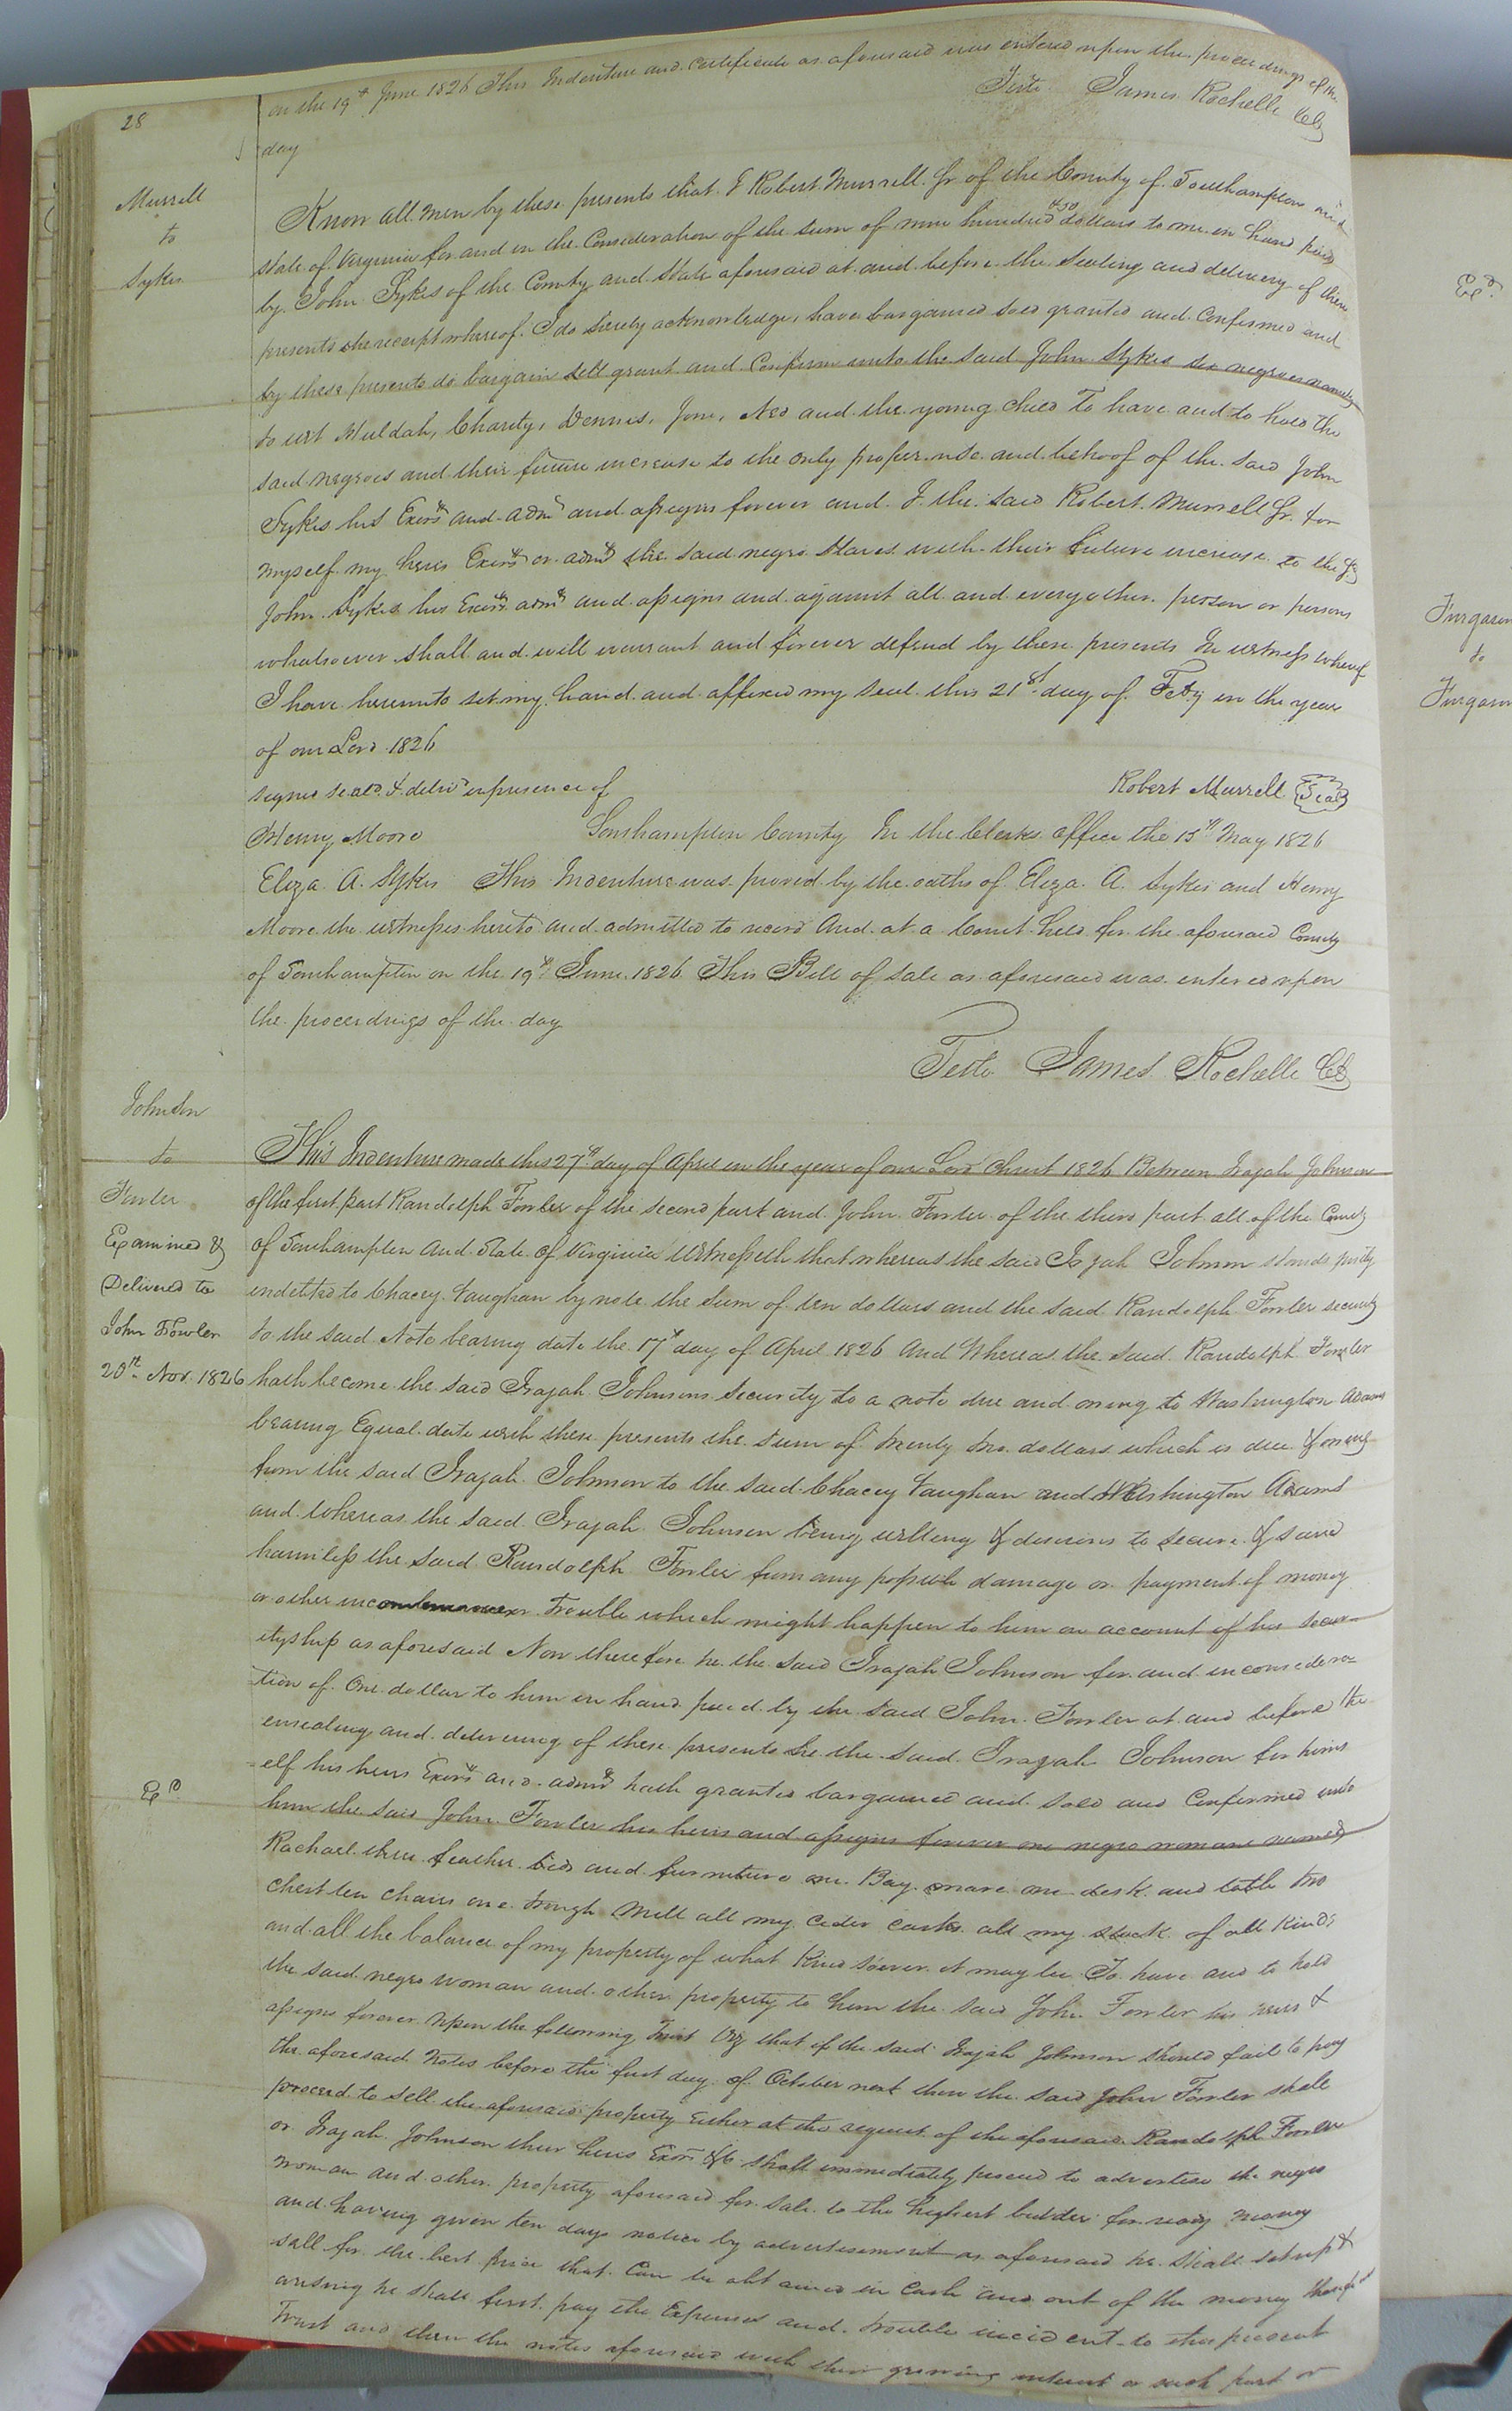 28
on the 19th June 1826 This Indenture and Certificate as aforesaid was entered upon the proceedings of the
day
Teste James Rochelle Clk
Murrell
to
Sykes
Know all men by these presents that I Robert Murrell Jr of the County of Southampton and
State of Virginia for and in the Consideration of the sum of nine hundred dollars to me in hand paid
by John Sykes of the County and State aforesaid at and before the Sealing and delivery of these
presents the receipt whereof I do hereby acknowledge, have bargained sold granted and Confirmed and
by these presents do bargain sell grant and Confirm unto the said John Sykes six negroes namely
to wit Huldah, Charity, Dennis, Jone, Ned and the young child To have and to hold the
said negroes and their future increase to the only proper use and behoof of the said John
Sykes his Exors and admrs and assigns forever and I the said Robert Murrell Jr for
myself my heirs Exors or admrs the said negro Slaves with their future increase to the sd
John Sykes his Exors admrs and assigns and against all and every other person or persons
whatsoever shall and will warrant and forever defend by these presents In witness whereof
I have hereunto set my hand and affixed my seal this 21st day of Feby in the year
of our Lord 1826
signed seald & delivd in presence of
Robert Murrell Seal
Henry Moore Southampton County In the Clerks office the 15th May 1826
Eliza A. Sykes This Indenture was proved by the oaths of Eliza A. Sykes and Henry
Moore the witnesses hereto and admitted to record And at a Court held for the aforesaid County
of Southampton on the 19th June 1826 This Bill of Sale as aforesaid was entered upon
the proceedings of the day
Teste James Rochelle Clk
Johnson
to
Fowler
Examined &
Delivered to
John Fowler
20th Nov. 1826
This Indenture made this 27th day of April in the year of our Lord Christ 1826 Between Irajah Johnson
of the first part Randolph Fowler of the second part and John Fowler of the third part all of the County
of Southampton and State of Virginia Witnesseth that whereas the said Irajah Johnson stands justly
indebted to Chacey Vaughan by note the sum of ten dollars and the said Randolph Fowler security
to the said Note bearing date the 17th day of April 1826 And Whereas the said Randolph Fowler
hath become the said Irajah Johnsons Security to a note due and owing to Washington Adams
bearing Equal date with these presents the sum of twenty two dollars which is due & owing
from the said Irajah Johnson to the said Chacey Vaughan and Washington Adams
and whereas the said Irajah Johnson being willing & desirous to secure & save
harmless the said Randolph Fowler from any possible damage or payment of money
or other Trouble which might happen to him on account of his Secur-
ityship as aforesaid Now therefore he the said Irajah Johnson for and in considera-
tion of One dollar to him in hand paid by the said John Fowler at and before the
ensealing and delivering of these presents he the said Irajah Johnson for hims
-elf his heirs Exors and admrs hath granted bargained and sold and Confirmed unto
him the said John Fowler his heirs and assigns forever one negro woman named
Rachael three feather beds and furniture one Bay mare one desk and table two
chest ten chairs one trough Mill all my Cider casks all my stock of all kinds
and all the balance of my property of what Kind soever it may be To have and to hold
the said negro woman and other property to him the said John Fowler his heirs &
assigns forever upon the following Trust Viz that if the said Irajah Johnson should fail to pay
the aforesaid Notes before the first day of October next then the said John Fowler shall
proceed to sell the aforesaid property Either at the request of the aforesaid Randolph Fowler
or Irajah Johnson their heirs Exors &c shall immediately proceed to advertise the negro
woman and other property aforesaid for sale to the highest bidder for ready money
and having given ten days notice by advertisement as aforesaid he shall set up &
sell for the best price that Can be obtained in Cash and out of the money therefrom
arising he shall first pay the Expenses and trouble incident to this present
Trust and then the notes aforesaid with their growing interest or such part or
Exd
Exd.
Furgason
to
Furgason